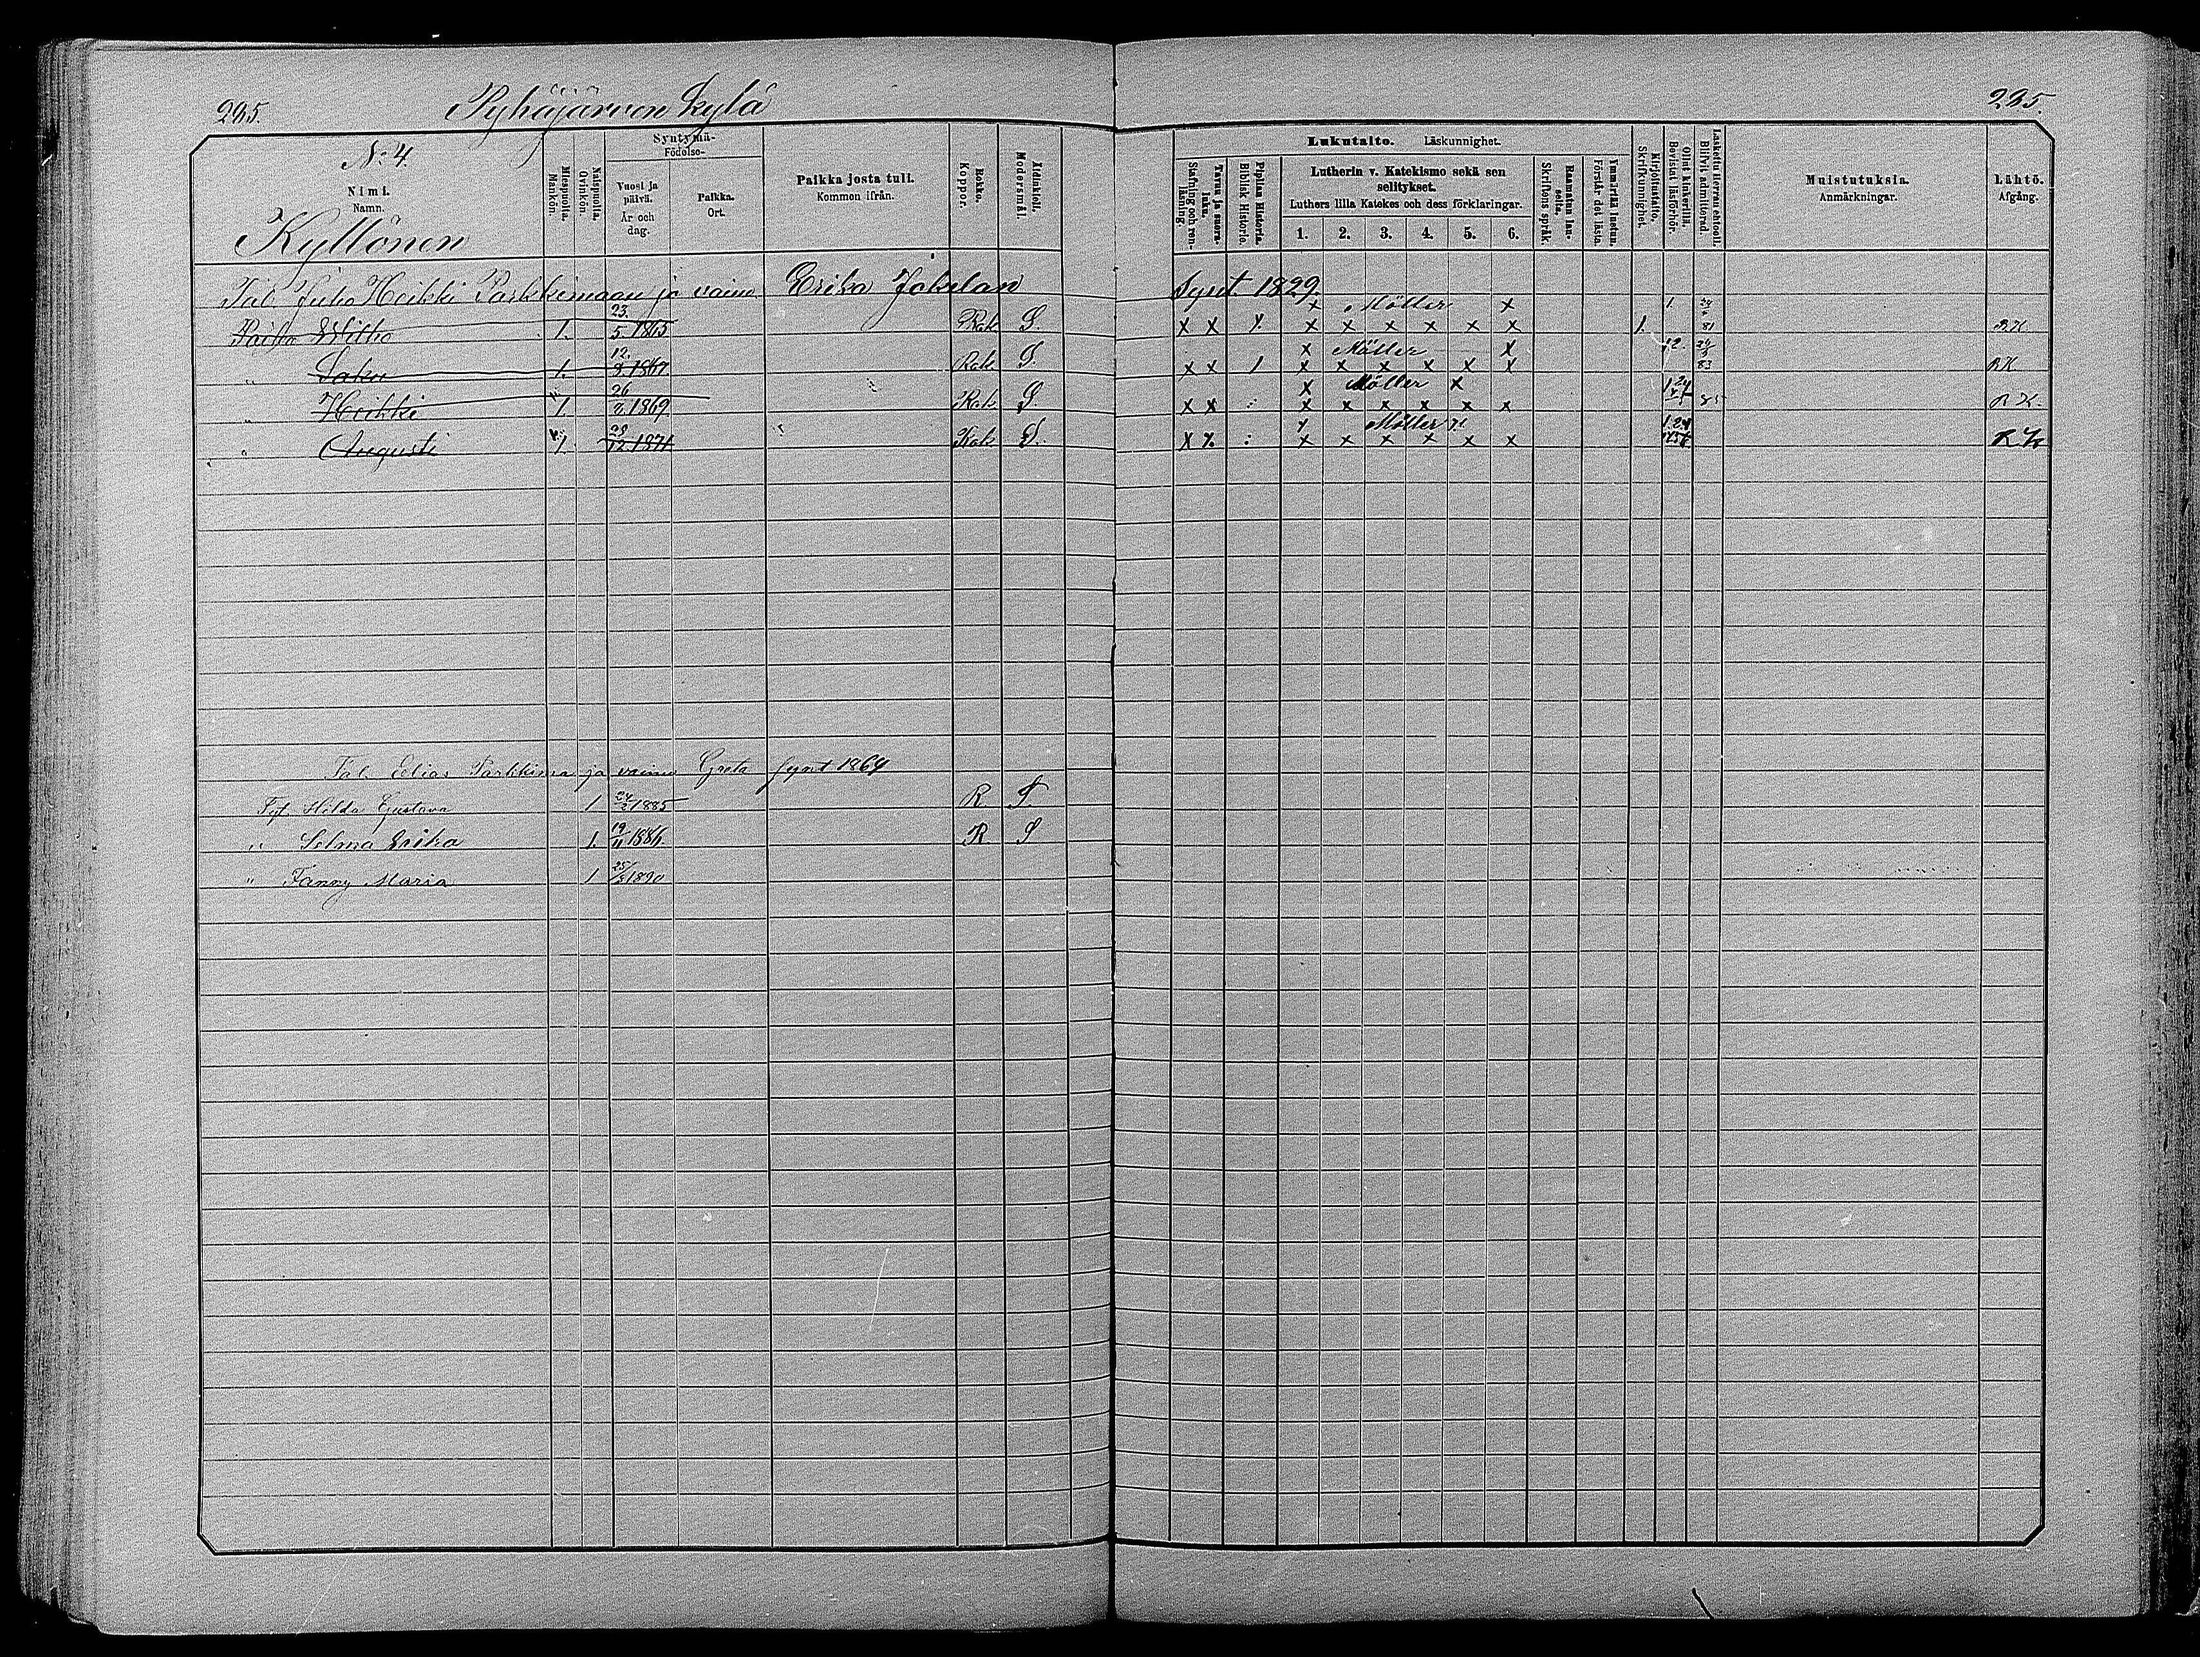 235.
Pyhäjärven kylä
235.
No 4.
Nimi.
Namn.
Kyllönen
Miespuolia. Mankön.
Naispuolia. Qvinkön.
Syntymä-
Födelse-
Vuosi ja päivä.
År och dag.
Paikka.
Ort.
Paikka josta tuli.
Kommen ifrån.
Rokko. Koppor.
Äidinkieli. Modersmål.
Lukutaito. Läskunnighet.
Tavuu ja suora- luku. Stafning och ren- läsning.
Piplian Historia. Biblisk Historie.
Lutherin v. Katekismo sekä sen selitykset.
Luthers lilla Katekes och dess förklaringar.
1. 2. 3. 4. 5. 6.
Raamatun lau- seita. Skriftens språk.
Ymmärtää luetun. Förstår det lästa.
Kirjoitustaito. Skrifkunnighet.
Ollut kinkerillä. Bevistat läsförhör.
Laskettu Herran ehtooll. Blifvit admitterad.
Muistutuksia.
Anmärkningar.
Lähtö.
Afgång.
Tal. Juho Heikki Parkkimaan ja vaimo Erika Jakulan Synt. 1829.
x Möller x 1.
Poika Wilho 1. 23/5 1865 Rok S. x x x x x x x x 1. 81 R.K.
x Möller x 12.
" Saku 1. 12. 1867 Rok S. x x 1 x x x x x x 83 R.K.
x Möller x
" Heikki 1. 26 1869 Rok S x x x x x x x x R.K.
Möller
" Augusti 1. 12 1871 Rok S. x x x x x x x
Tal. Elias Parkkima ja vaimo Greta synt 1864
Tyt. Hilda Gustava 1 1885 R. S.
" Selma Erika 1. 19/11 1886 R. S
" Fanny Maria 1 25/ 1890